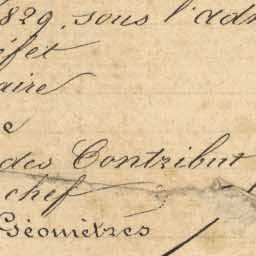 1829, sous l'adm
éfet
aire
e
des Contribut
chef
Géomètres